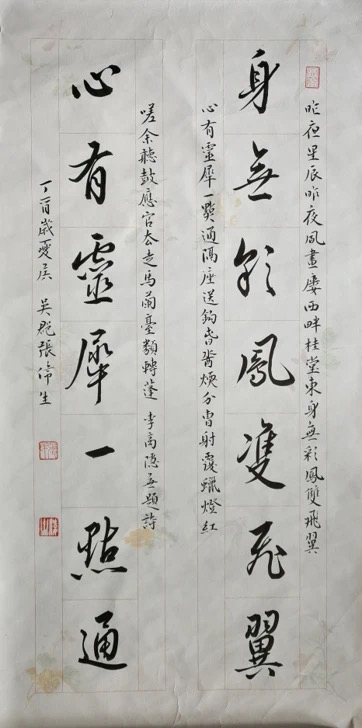 昨夜星辰昨夜風畫廔西畔桂堂東身無彩鳳雙飛翼
身無彩鳳雙飛翼
心有靈犀一點通隔座送鈎春酒煗分曹射覆蠟燈紅
嗟余聽鼓應官去走馬蘭臺類轉蓬 李商隱無題詩
心有靈犀一點通
丁酉歲夏 吳 張 生